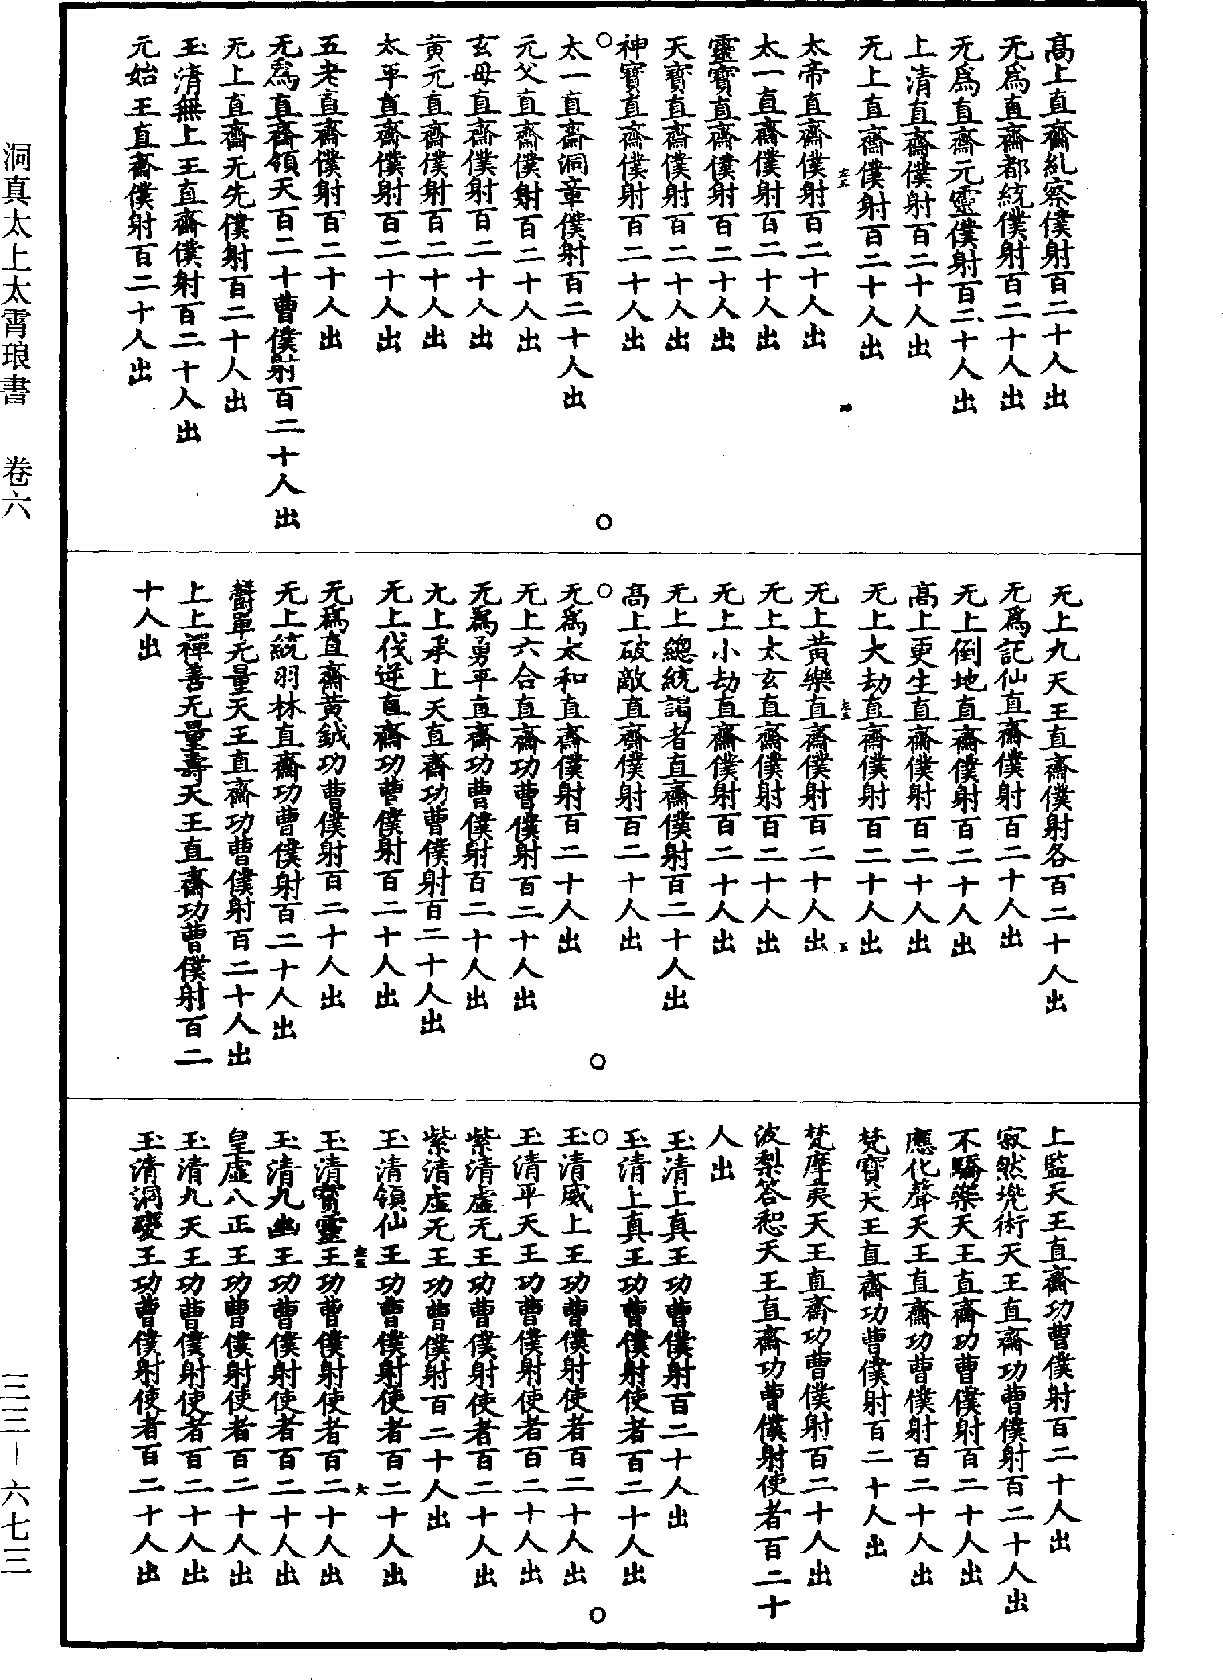 高上直齋糺察僕射百二十人出
无爲直齋都統僕射百二十人出
无爲直齋元靈僕射百二十人出
上清直齋僕射百二十人出
无上直齋僕射百二十人出
太帝直齋僕射百二十人出
太一直齋僕射百二十人出
靈寶直齋僕射百二十人出
天寶直齋僕射百二十人出
神寶直齋僕射百二十人出
太一直齋洞章僕射百二十人出
元父直齋僕射百二十人出
玄母直齋僕射百二十人出
黄元直齋僕射百二十人出
太平直齋僕射百二十人出
五老直齋僕射百二十人出
无爲直齋領天百二十曹僕射百二十人出
无上直齋无先僕射百二十人出
玉清無上王直齋僕射百二十人出
元始王直齋僕射百二十人出
无上九天王直齋僕射各百二十人出
无爲記仙直齋僕射百二十人出
无上倒地直齋僕射百二十人出
高上更生直齋僕射百二十人出
无上大劫直齋僕射百二十人出
无上黄樂直齋僕射百二十人出
无上太玄直齋僕射百二十人出
无上小劫直齋僕射百二十人出
无上總統謁者直齋僕射百二十人出
高上破敵直齋僕射百二十人出
无爲太和直齋僕射百二十人出
无上六合直齋功曹僕射百二十人出
无爲勇平直齋功曹僕射百二十人出
尢上承上天直齋功曹僕射百二十人出
无上伐逆直齋功曹僕射百二十人出
无爲直齋黄鉞功曹僕射百二十人出
无上統羽林直齋功曹僕射百二十人出
鬱單无量天王直齋功曹僕射百二十人出
上上禪善无量壽天王直齋功曹僕射百二
十人出
上監天王直齋功曹僕射百二十人出
寂然兠術天王直齋功曹僕射百二十人出
不驕樂天王直齋功曹僕射百二十人出
應化聲天王直齋功曹僕射百二十人出
梵寶天王直齋功曹僕射百二十人出
梵摩夷天王直齋功曹僕射百二十人出
波梨答惒天王直齋功曹僕射使者百二十
人出
玉清上真王功曹僕射百二十人出
玉清上真王功曹僕射使者百二十人出
玉清威上王功曹僕射使者百二十人出
玉清平天王功曹僕射使者百二十人出
紫清虛无王功曹僕射使者百二十人出
紫清虛无王功曹僕射百二十人出
玉清領仙王功曹僕射使者百二十人出
玉清寶靈王功曹僕射使者百二十人出
玉清九幽王功曹僕射使者百二十人出
皇虛八正王功曹僕射使者百二十人出
玉清九天王功曹僕射使者百二十人出
玉清洞變王功曹僕射使者百二十人出
洞真太上太霄琅書　卷六
三三－六七三